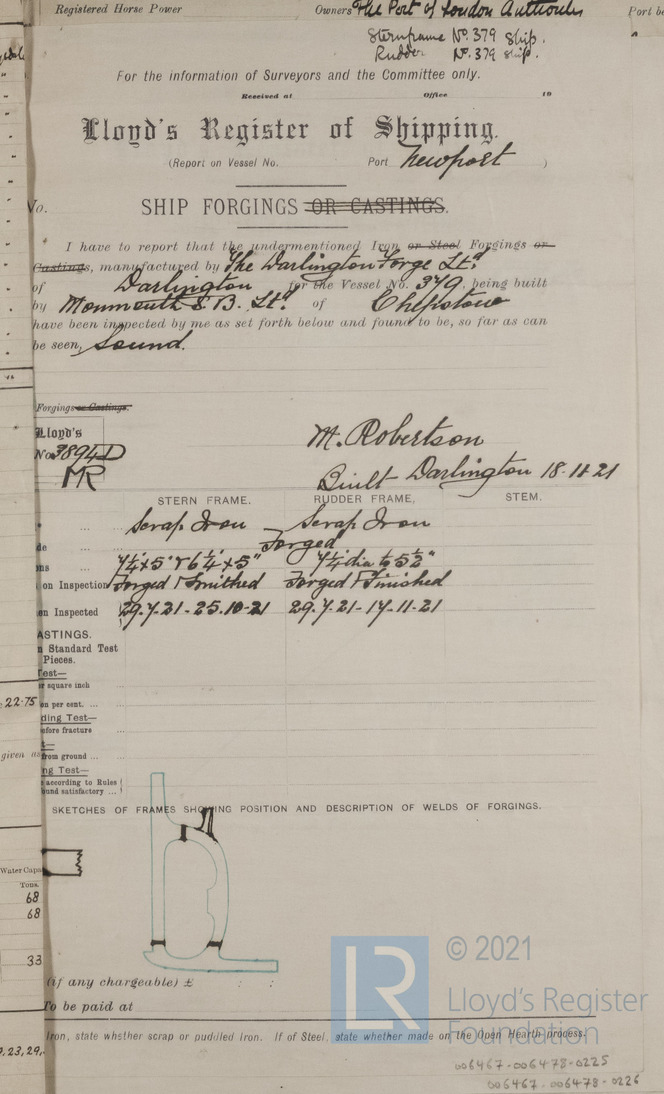 Registered Horse Power Owners The Port of London Authority Port be
Sternframe No. 379 Ship.
Rudder No. 379 Ship.
For the information of Surveyors and the Committee only.
Received at Office 19
Lloyd's Register of Shipping.
(Report on Vessel No. Port Newport )
No. SHIP FORGINGS OR CASTINGS.
I have to report that the undermentioned Iron or Steel Forgings or
Castings, manufactured by The Darlington Forge Ltd
of Darlington for the Vessel No. 379, being built
by Monmouth S. B. Ltd. of Chepstow
have been inspected by me as set forth below and found to be, so far as can
be seen, Sound.
Forgings or Castings.
Lloyd's
No 3894 D
MR
M. Robertson
Built Darlington 18-11-21
STERN FRAME. RUDDER FRAME, STEM.
... Scrap Iron Scrap Iron
de ... Forged
ns ... 7¼"x5" & 6¼"x5" 7¼ dia to 5½"
on Inspection Forged & Smithed Forged & Finished
en Inspected 29.7.21-25.10-21 29.7.21-17.11-21
ASTINGS.
n Standard Test
Pieces.
Test—
er square inch ...
22.75 on per cent. ...
ding Test—
efore fracture ...
t—
given as from ground ... ...
ng Test—
s according to Rules
ound satisfactory ...
SKETCHES OF FRAMES SHOWING POSITION AND DESCRIPTION OF WELDS OF FORGINGS.
Water Capa
Tons.
68
68
33
(if any chargeable) £ : :
To be paid at
Iron, state whether scrap or puddled iron. If of Steel, state whether made on the Open Hearth process.
.23,29,
LR
© 2021
Lloyd's Register
Foundation
006467-006478-0225
006467-006478-0226